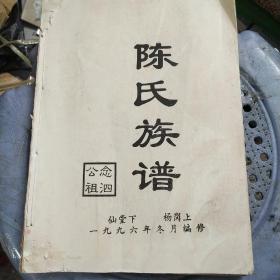 陈氏族谱
念泗
公祖
仙堂下 杨岗上
一九九六年冬月编修